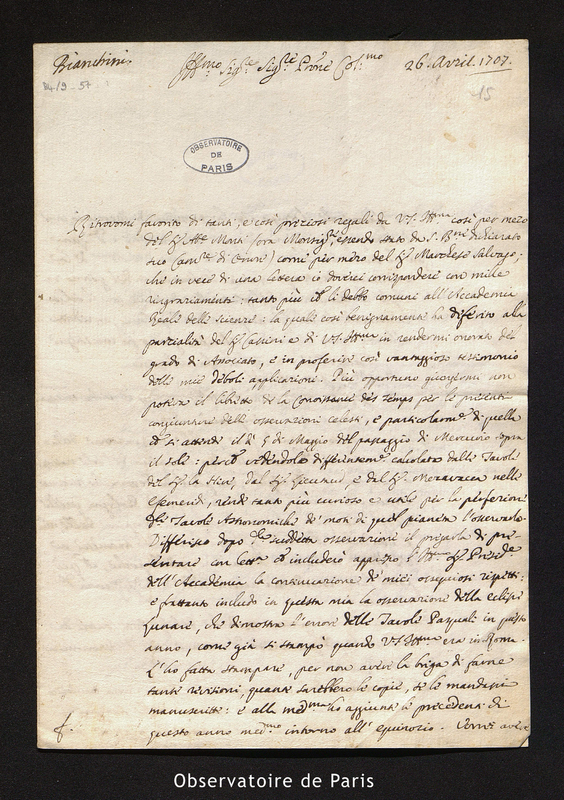 Bianchini
Illmo Sigre Sigre Prone Col:mo
26. Avril. 1707.
B4/9-57
15
OBSERVATOIRE
DE
PARIS
Ritrovomi favorito di tanti, e così preziosi regali da V.S. Illma così per mezo
del Sr Abe (ora Monsigr, essendo stato da S. dichiarato
suo di onore) come per mezo del Sr Marchese Salvago;
che in vece di una lettera io dovrei corrispondere con mille
ringraziamenti: tanto più che li debbo comuni all'Accademia
Reale delle Scienze: la quale così benignamente ha diferito alla
parzialità del Sr Cassini e di V.S. Illma in rendermi onorato del
grado di Associato, e in proferire così vantaggioso testimonio
delle mie deboli applicazioni. Più opportuno giungermi non
poteva il libretto de la Connoissance des Temps per le presenti
congiunture delle osservazioni celesti, e particolarme di quella
che si attende il dì 5 di Maggio del passaggio di Mercurio sopra
il sole: perchè vedendolo differenteme calcolato dalle Tavole
del Sr la Hire, dal Sr e dal Sr Mezavacca nelle
efemeridi, rende tanto più curioso e utile per la perfezione
delle Tavole Astronomiche de' moti di quel pianeta l'osservarlo.
Differisco dopo la suddetta osservazione il pregarla di pre-
sentare con lettra che includerò appresso l' Illmo Sr Preside
dell'Accademia la continuazione de' miei ossequiosi rispetti:
e frattanto includo in questa mia la osservazione della eclisse
lunare, che dimostra l'errore delle Tavole Pasquali in questo
anno, come già si stampò quando V.S. Illma era in Roma.
L'ho fatta stampare, per non avere la briga di farne
tante revisioni, quante sarebbero le copie, se le mandassi
manuscritte: e alla medma ho aggiunta le precedenti di
questo anno medmo intorno all'equinozio. Vorrei avere
Observatoire de Paris